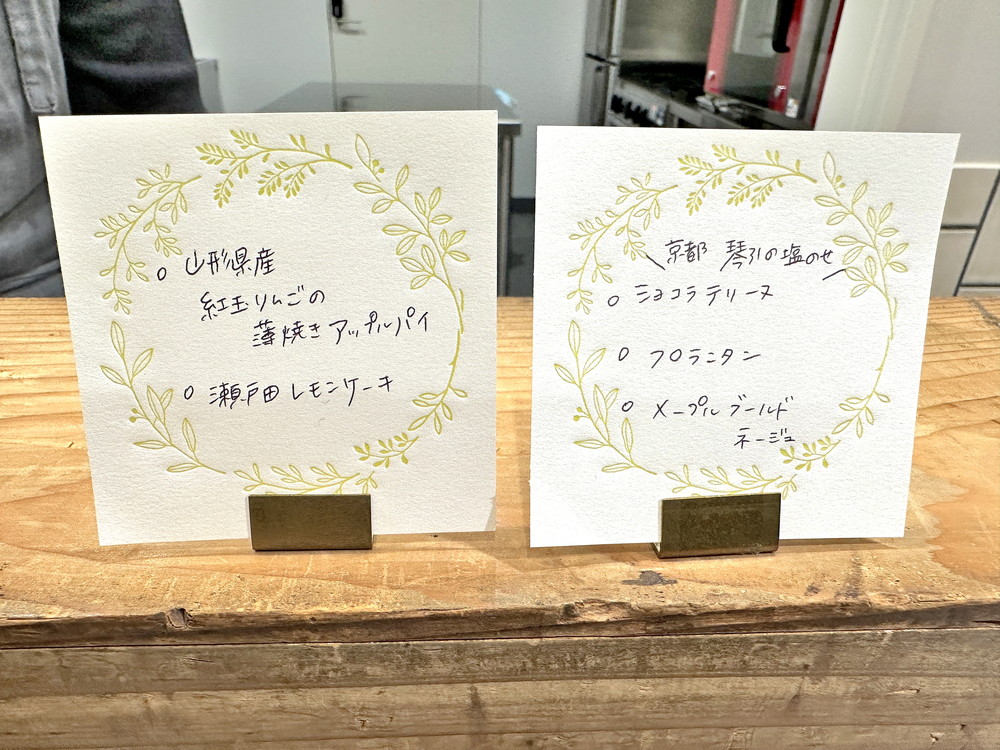 ○ 山形県産
紅玉りんごの
薄焼きアップルパイ
○ 瀬戸田レモンケーキ
＼京都 琴引の塩のせ／
○ ショコラテリーヌ
○ フロランタン
○ メープルブールド
ネージュ